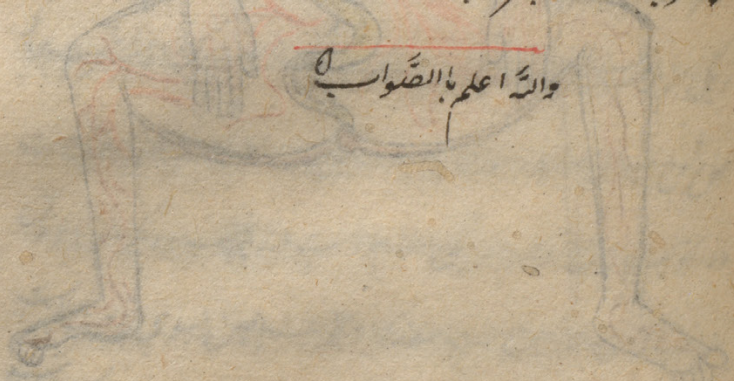 واللّه اعلم باالصَّواب